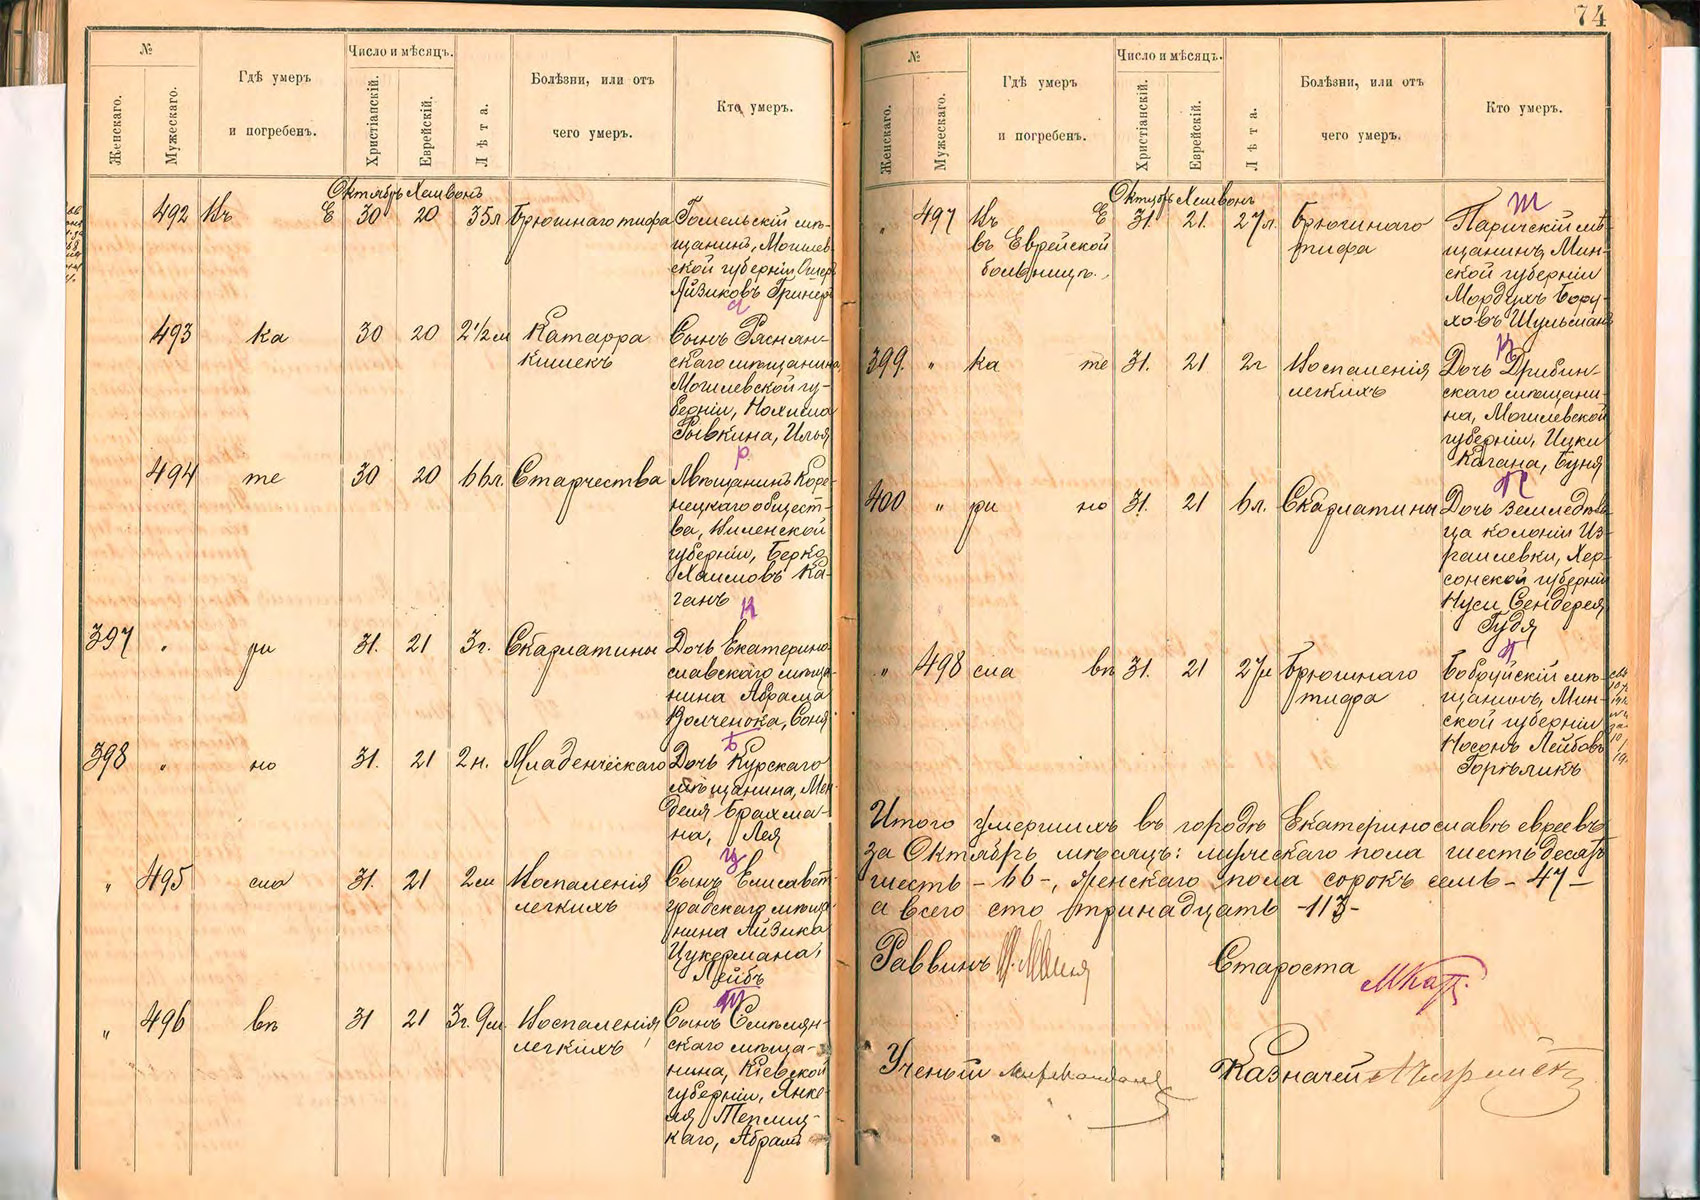 74
№
Число и мѣсяцъ.
Женскаго.
Мужескаго.
Гдѣ умеръ
и погребенъ.
Христіанскій.
Еврейскій.
Лѣта.
Болѣзни, или отъ
чего умеръ.
Кто умеръ.
Октябрь Хешвонъ
492 Въ Е 30 20 35л Брюшнаго тифа Гомельскій мѣ-
щанинъ, Могилев-
ской губерніи Ошеръ
Айзиковъ Гринеръ
493 ка 30 20 2½м Катарра СынъРяснян-
кишекъ скаго мѣщанина
Могилевской гу-
берніи, Нохима
Рывкина, Илья
р
494 те 30 20 66л. Старчества Мѣщанинъ Коре-
нецкаго общест-
ва, Виленской
губерніи, Берко
Хаимовъ Ка-
ганъ
к
397 " ри 31. 21 3г. Скарлатины Дочь Екатерино-
славскаго мѣща-
нина Абрама
Волченока, Соня
398 " но 31. 21 2н. Младенческаго Дочь Курскаго
мѣщанина, Мен-
деля Брахма-
на, Лея
ц
" 495 сла 31. 21 2м Воспаленія Сынъ Елисавет-
легкихъ градскаго мѣща-
нина Айзика
Цукермана,
Лейбъ
" 496 вѣ 31 21 3г. 9м. Воспаленія Сынъ Смѣлян-
легкихъ скаго мѣща-
нина, Кіевской
губерніи, Янке-
ля Теплиц-
каго, Абрамъ
№
Число и мѣсяцъ.
Женскаго.
Мужескаго.
Гдѣ умеръ
и погребенъ.
Христіанскій.
Еврейскій.
Лѣта.
Болѣзни, или отъ
чего умеръ.
Кто умеръ.
Октябрь Хешвонъ
" 497 Въ Е 31. 21. 27л. Брюшнаго Паричскій мѣ-
въ Еврейской тифа щанинъ, Мин-
больницѣ. ской губерніи
Мордухъ Бору-
ховъ Шульманъ
399. " ка те 31. 21 2г Воспаленія Дочь Дрибин-
легкихъ скаго мѣщани-
на, Могилевской
губерніи, Ицки
Кагана, Буня
400 " ри но 31. 21 6л. Скарлатины Дочь земледѣль-
ца колоніи Из-
раилевки, Хер-
сонской губерніи
Нуси Сендерея
Гудя
" 498 сла вѣ 31. 21 27л Брюшнаго Бобруйскій мѣ-
тифа щанинъ, Мин-
ской губерніи
Носонъ Лейбовъ
Горѣликъ
Итого умершихъ въ городѣ Екатеринославѣ евреевъ
за Октябрь мѣсяцъ: мужескаго пола шестьдесятъ
шесть - 66 -, женскаго пола сорокъ семь - 47 -
а всего сто тринадцать - 113 -
Раввинъ Староста
Ученый Казначей